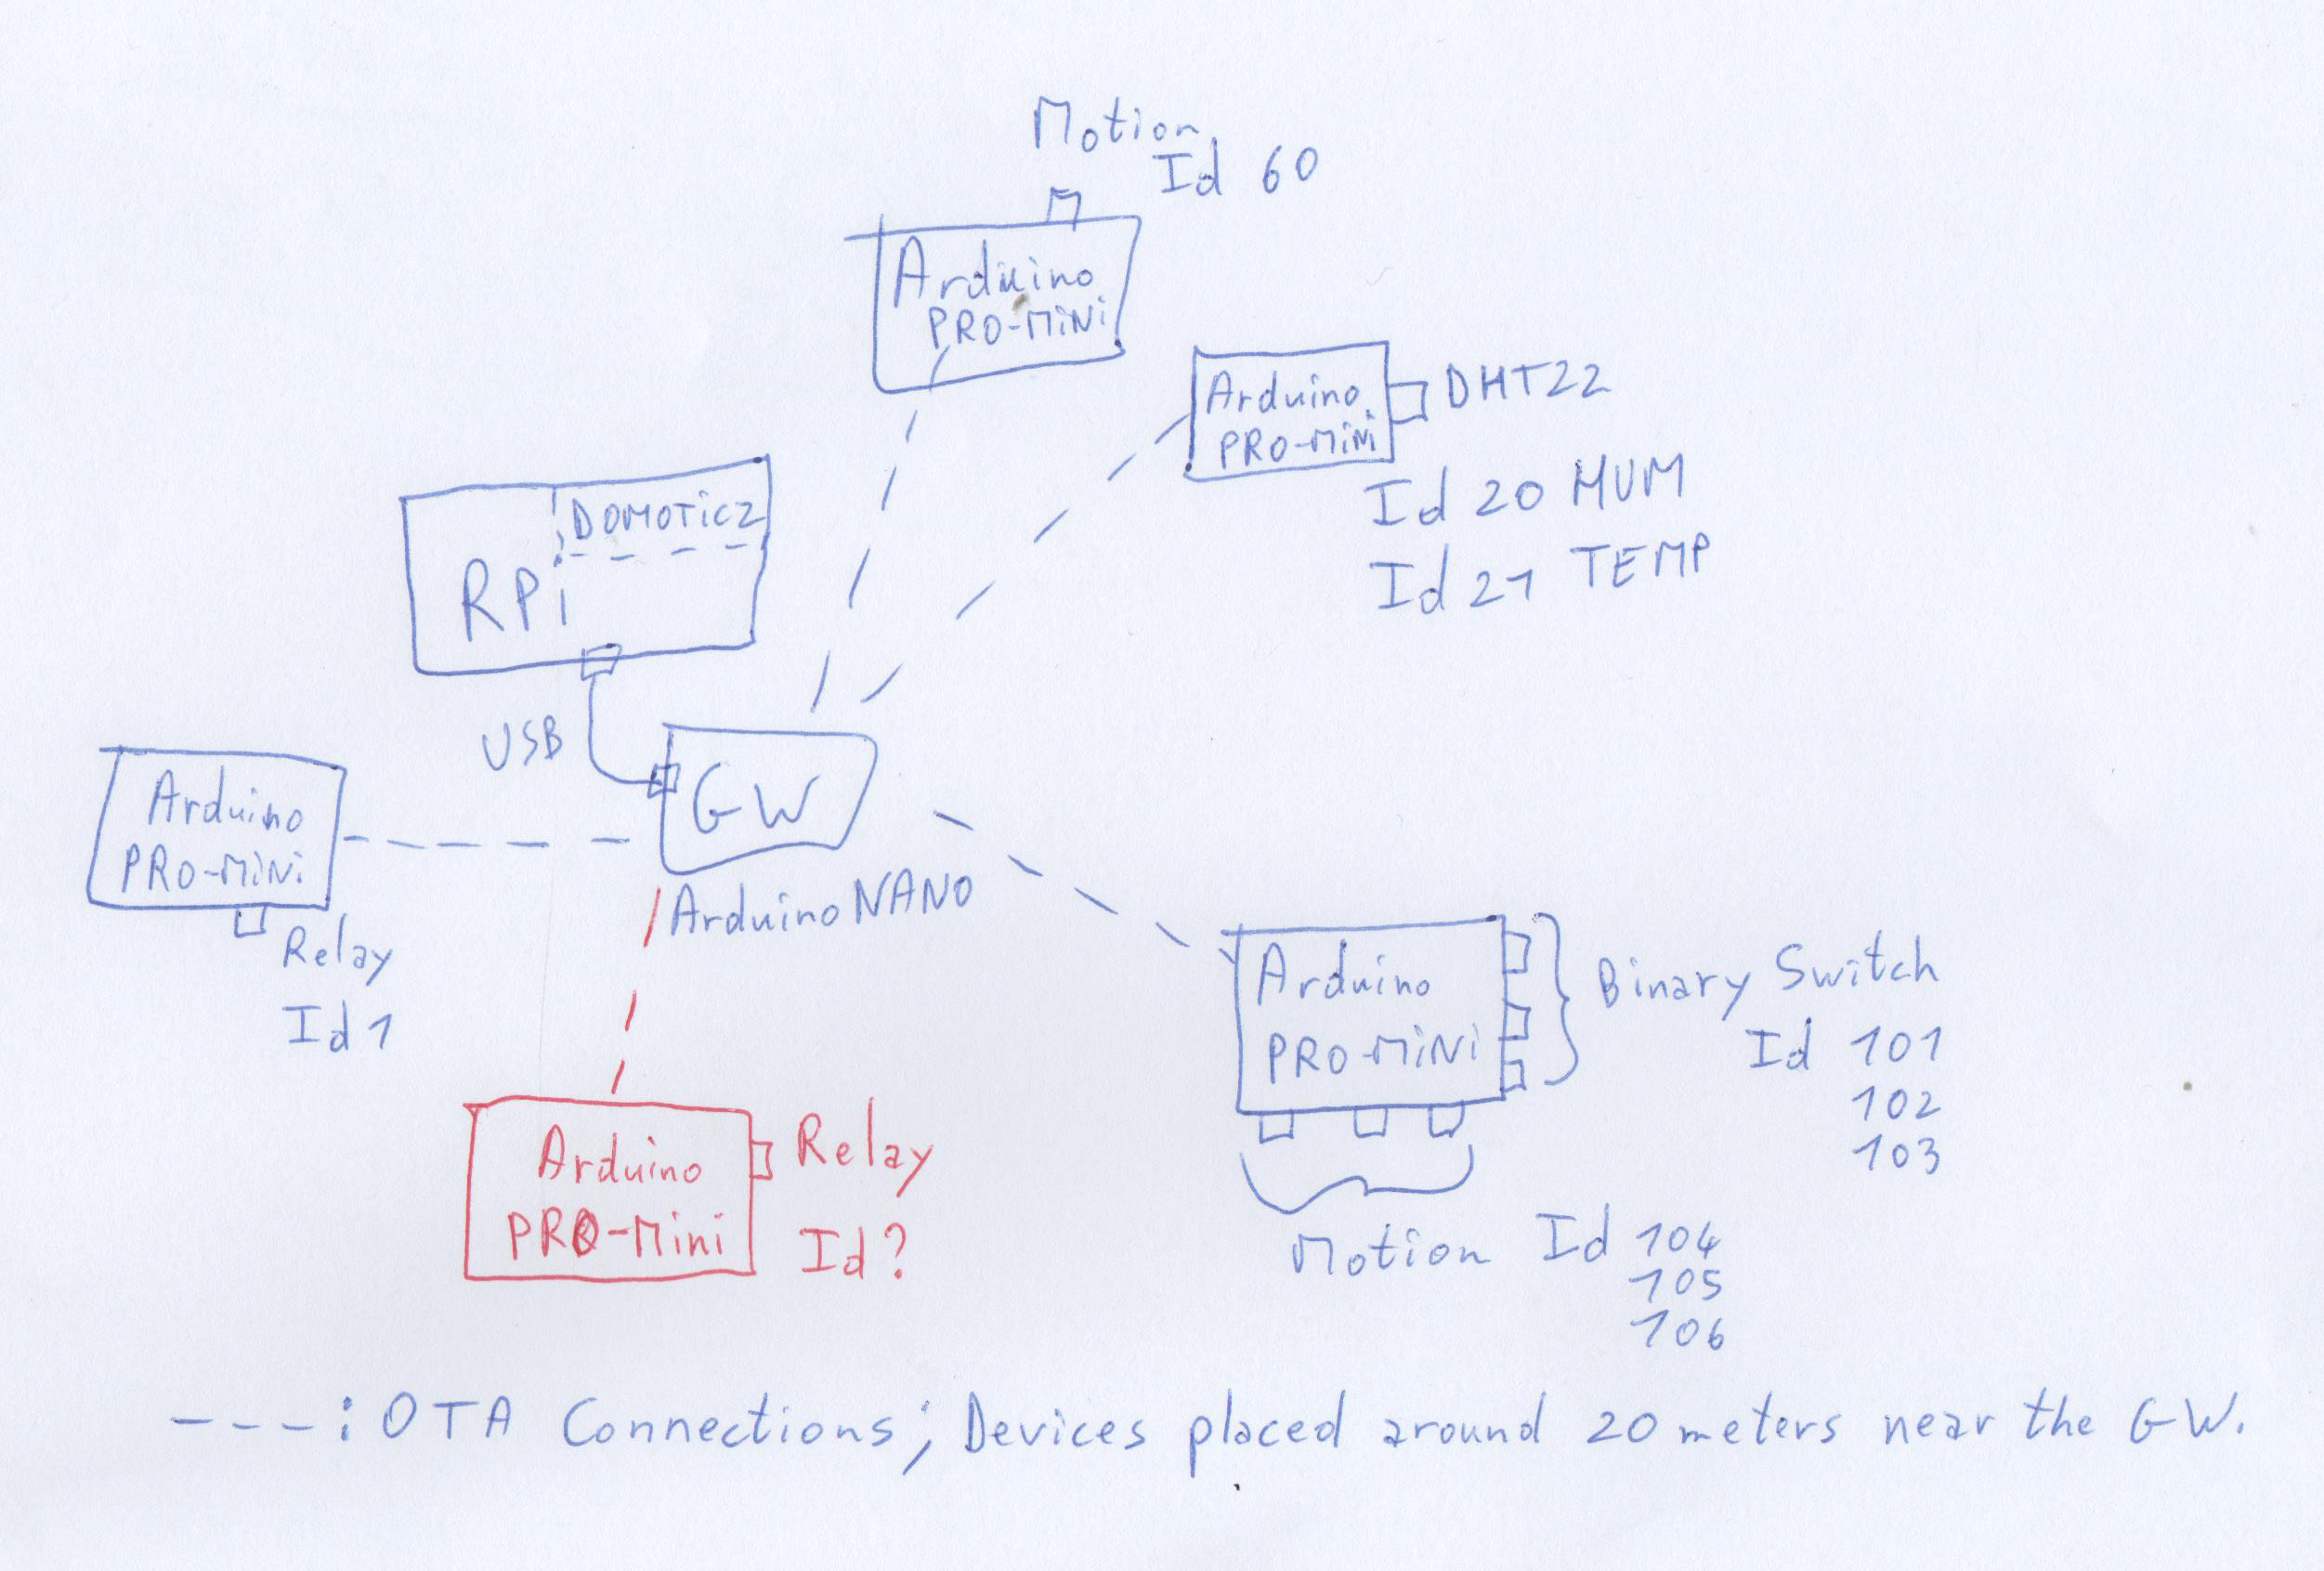 Motion
Id 60
Arduino
PRO-MiNi
Arduino
PRO-MiNi
DHT22
Id 20 HUM
Id 21 TEMP
DOMOTICZ
RPi
USB
GW
Arduino NANO
Arduino
PRO-MiNi
Relay
Id 1
Arduino
PRO-MiNi
Binary Switch
Id 101
102
103
Motion Id 104
105
106
Arduino
PRO-Mini
Relay
Id?
---: OTA Connections; Devices placed around 20 meters near the GW.